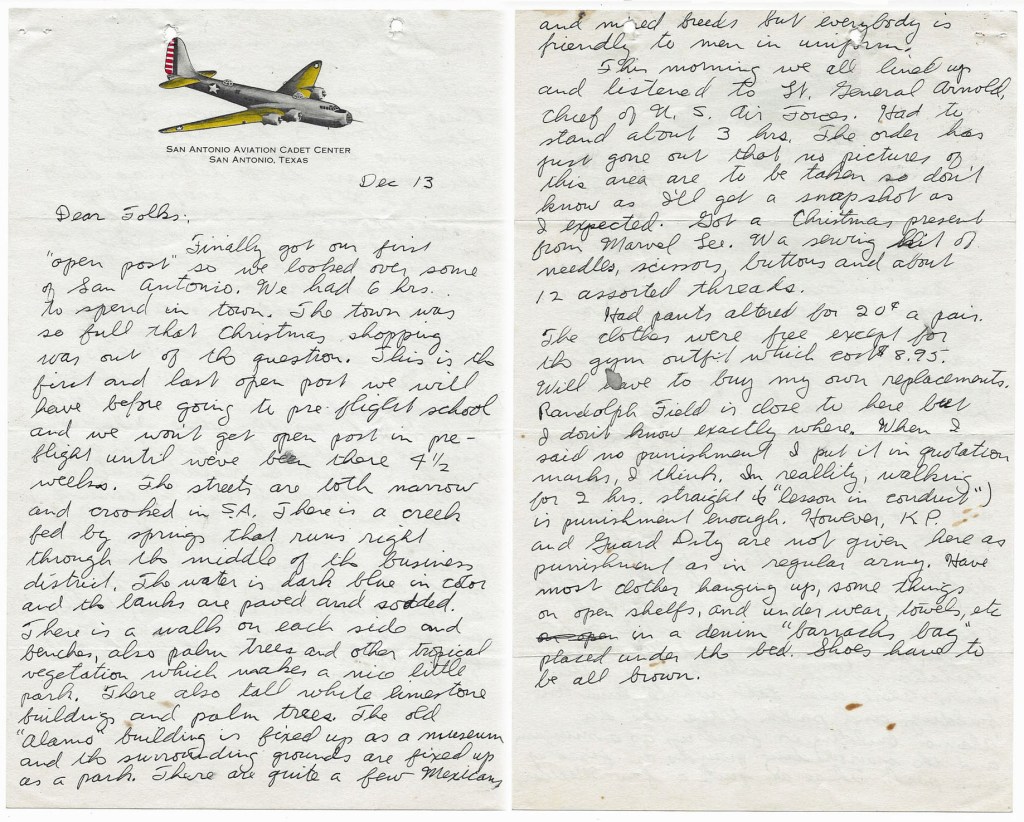 SAN ANTONIO AVIATION CADET CENTER
SAN ANTONIO, TEXAS
Dec 13
Dear Folks:
Finally got our first
"open post" so we looked over some
of San Antonio. We had 6 hrs.
to spend in town. The town was
so full that Christmas shopping
was out of the question. This is the
first and last open post we will
have before going to pre flight school
and we won't get open post in pre-
flight until we've been there 4 1/2
weeks. The streets are both narrow
and crooked in S.A. There is a creek
fed by springs that runs right
through the middle of the business
district. The water is dark blue in color
and the banks are paved and sodded.
There is a walk on each side and
benches, also palm trees and other tropical
vegetation which makes a nice little
park. There also tall white limestone
buildings and palm trees. The old
"Alamo" building is fixed up as a museum
and the surrounding grounds are fixed up
as a park. There are quite a few Mexicans
and mixed breeds but everybody is
friendly to men in uniform.
This morning we all lined up
and listened to Lt. General Arnold,
chief of U. S. Air Forces. Had to
stand about 3 hrs. The order has
just gone out that no pictures of
this area are to be taken so don't
know as I'll get a snapshot as
I expected. Got a Christmas present
from Marvel Lee. Wa sewing kit of
needles, scissors, buttons and about
12 assorted threads.
Had pants altered for 20¢ a pair.
The clothes were free except for
the gym outfit which cost $8.95.
Will have to buy my own replacements.
Randolph Field is close to here but
I don't know exactly where. When I
said no punishment I put it in quotation
marks, I think. In reallity, walking
for 2 hrs. straight ("lesson in conduct")
is punishment enough. However, K.P.
and Guard Duty are not given here as
punishment as in regular army. Have
most clothes hanging up, some things
on open shelfs, and under wear, towels, etc
on open in a denim "barracks bag"
placed under the bed. Shoes have to
be all brown.